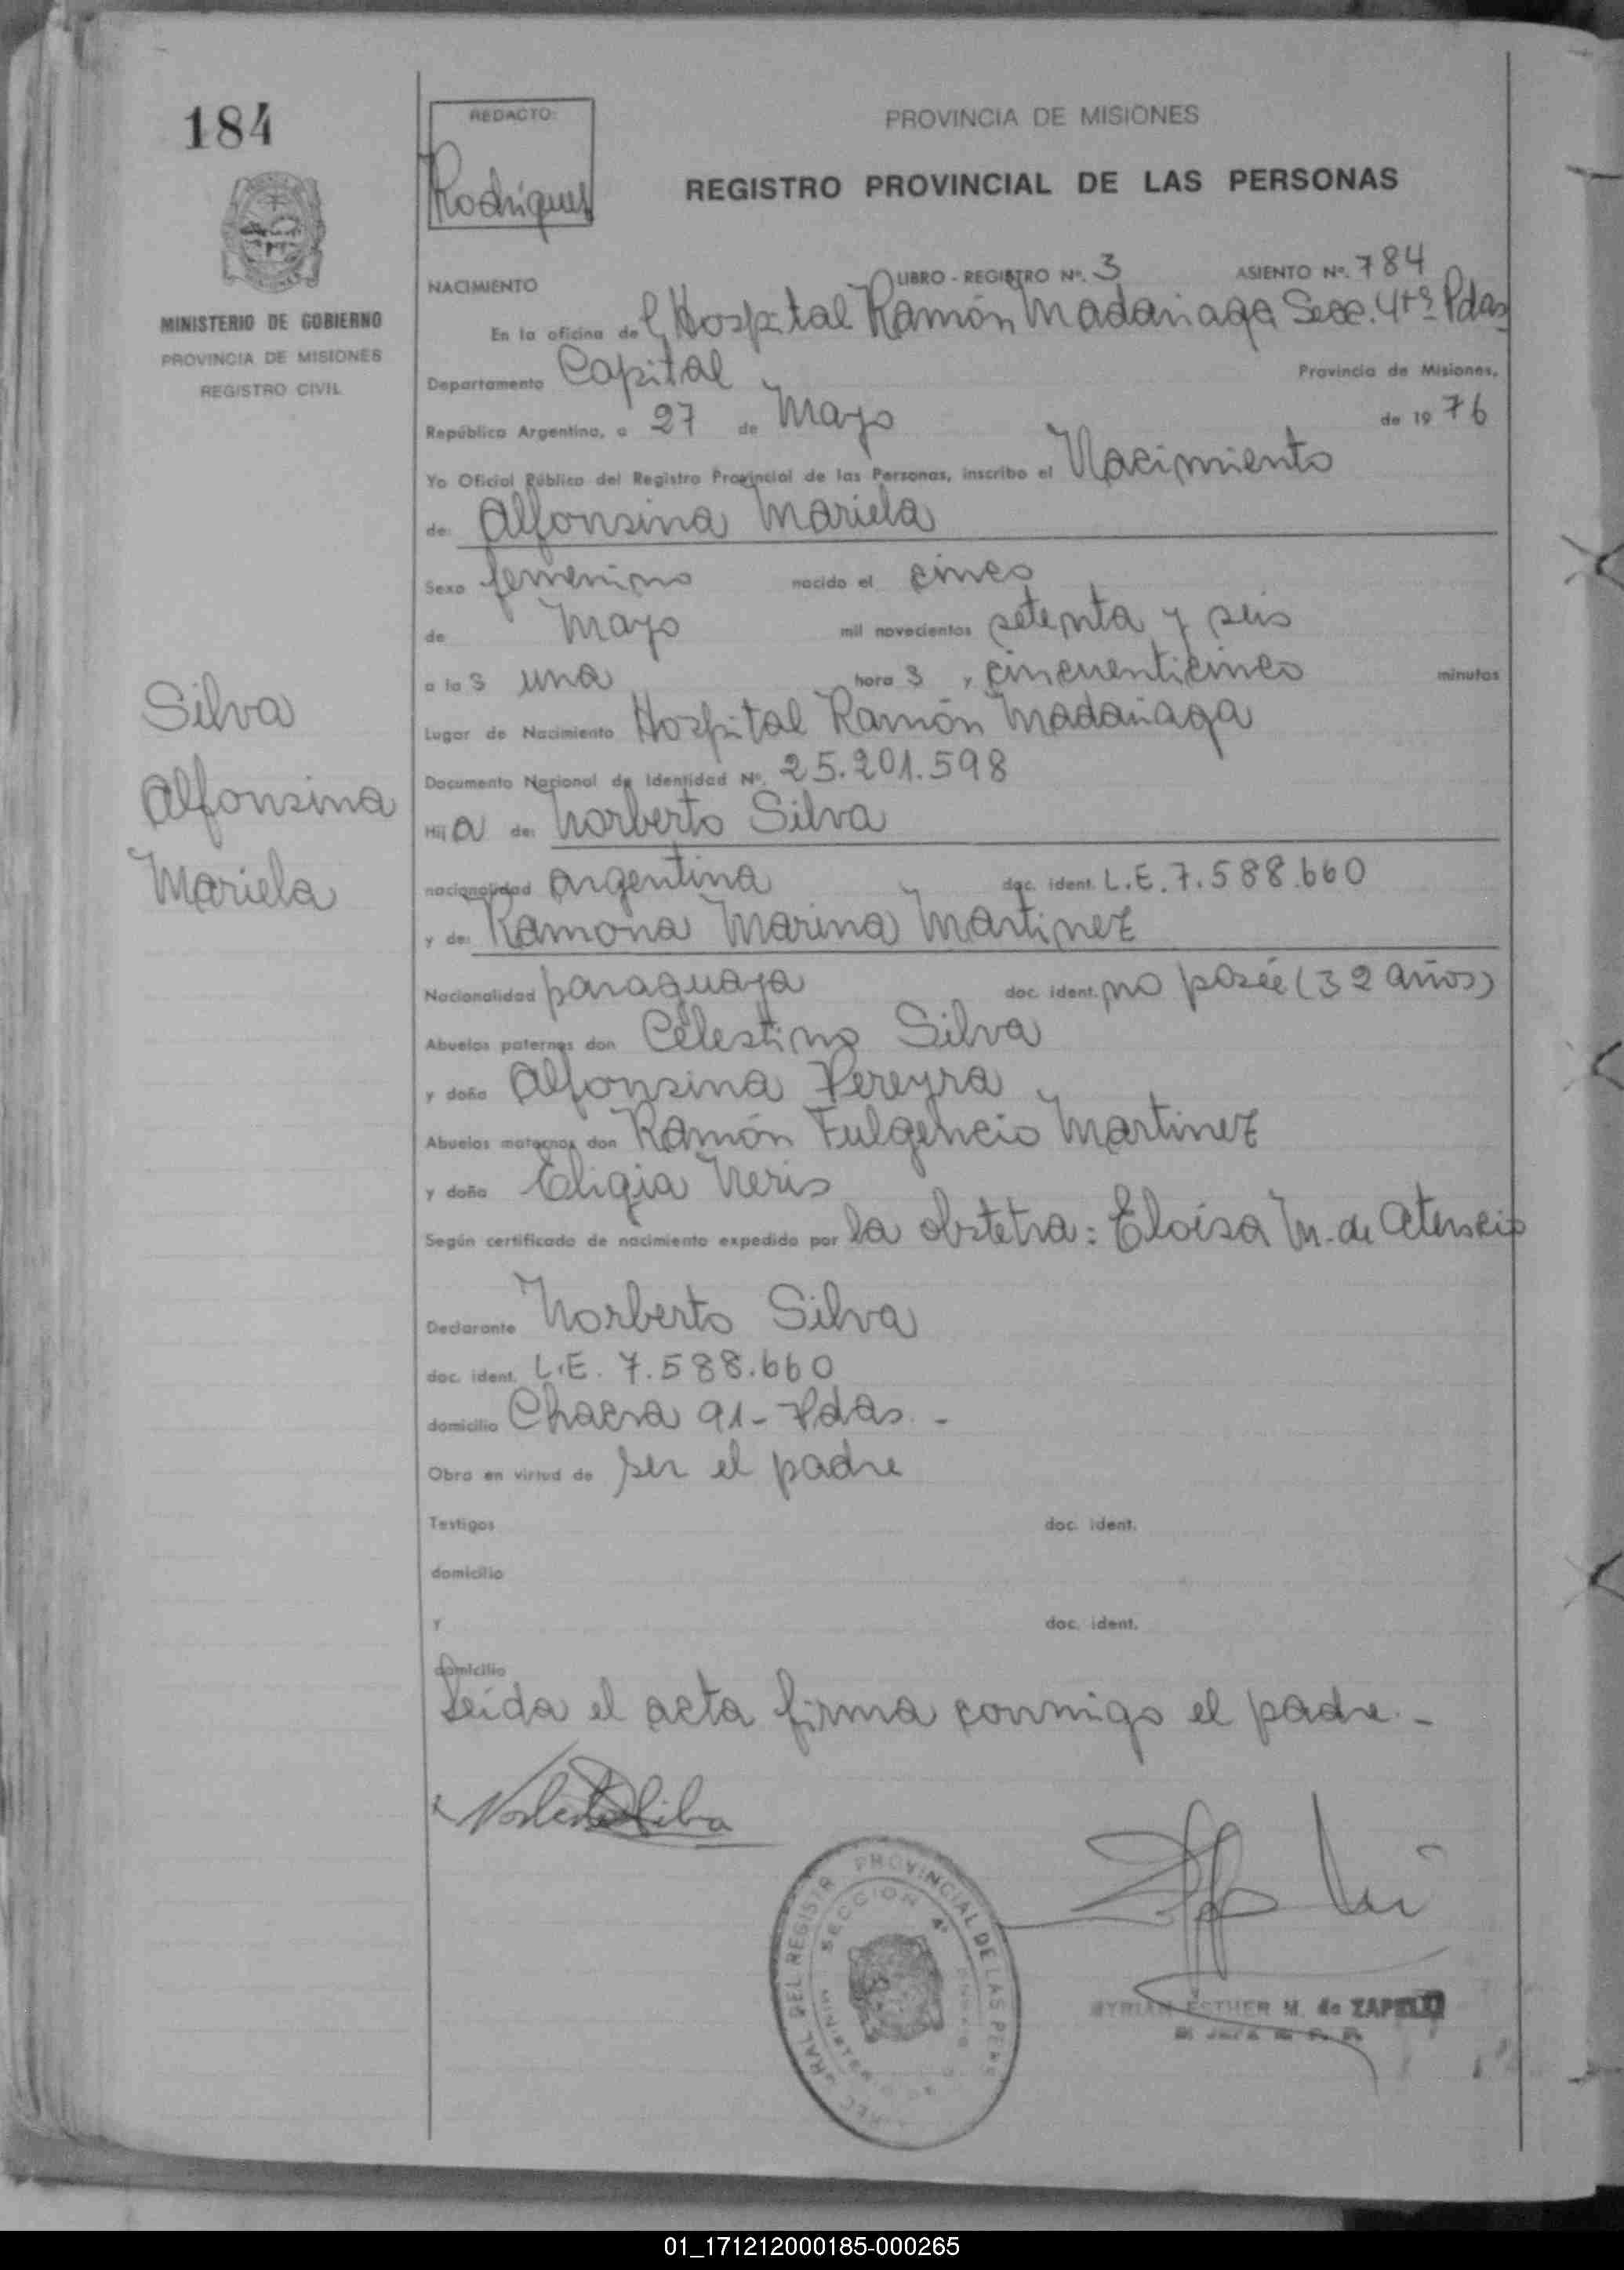 184
REDACTO:
Rodriguez
PROVINCIA DE MISIONES
REGISTRO PROVINCIAL DE LAS PERSONAS
MINISTERIO DE GOBIERNO
PROVINCIA DE MISIONES
REGISTRO CIVIL
NACIMIENTO LIBRO - REGISTRO Nº. 3 ASIENTO Nº. 784
En la oficina del Hospital Ramón Madariaga Secc. 4tª Pdas
Departamento Capital Provincia de Misiones,
República Argentina, a 27 de Mayo de 1976
Yo Oficial Público del Registro Provincial de las Personas, inscribo el Nacimiento
de: Alfonsina Mariela
Sexo femenino nacido el cinco
de Mayo mil novecientos setenta y seis
a las una horas y cincuenticinco minutos
Lugar de Nacimiento Hospital Ramón Madariaga
Documento Nacional de Identidad Nº. 25.201.598
Hija de: Norberto Silva
nacionalidad argentina doc. ident. L.E. 7.588.660
y de: Ramona Marina Martinez
Nacionalidad paraguaya doc. ident. no posée (32 años)
Abuelos paternos don Celestino Silva
y doña Alfonsina Pereyra
Abuelos maternos don Ramón Fulgencio Martinez
y doña Eligia Neris
Según certificado de nacimiento expedido por la obstetra: Eloísa M. de Atencio
Silva
Alfonsina
Mariela
Declarante Norberto Silva
doc. ident. L.E. 7.588.660
domicilio Chacra 91 - Pdas. -
Obra en virtud de ser el padre
Testigos doc. ident.
domicilio
Y doc. ident.
domicilio
Leida el acta firma conmigo el padre. -
Norberto Silva
PROVINCIAL DE LAS PERS
RAL DEL REGISTR
SECCION 4ª
MYRIAN ESTHER M. de ZAPELLI
01_171212000185-000265